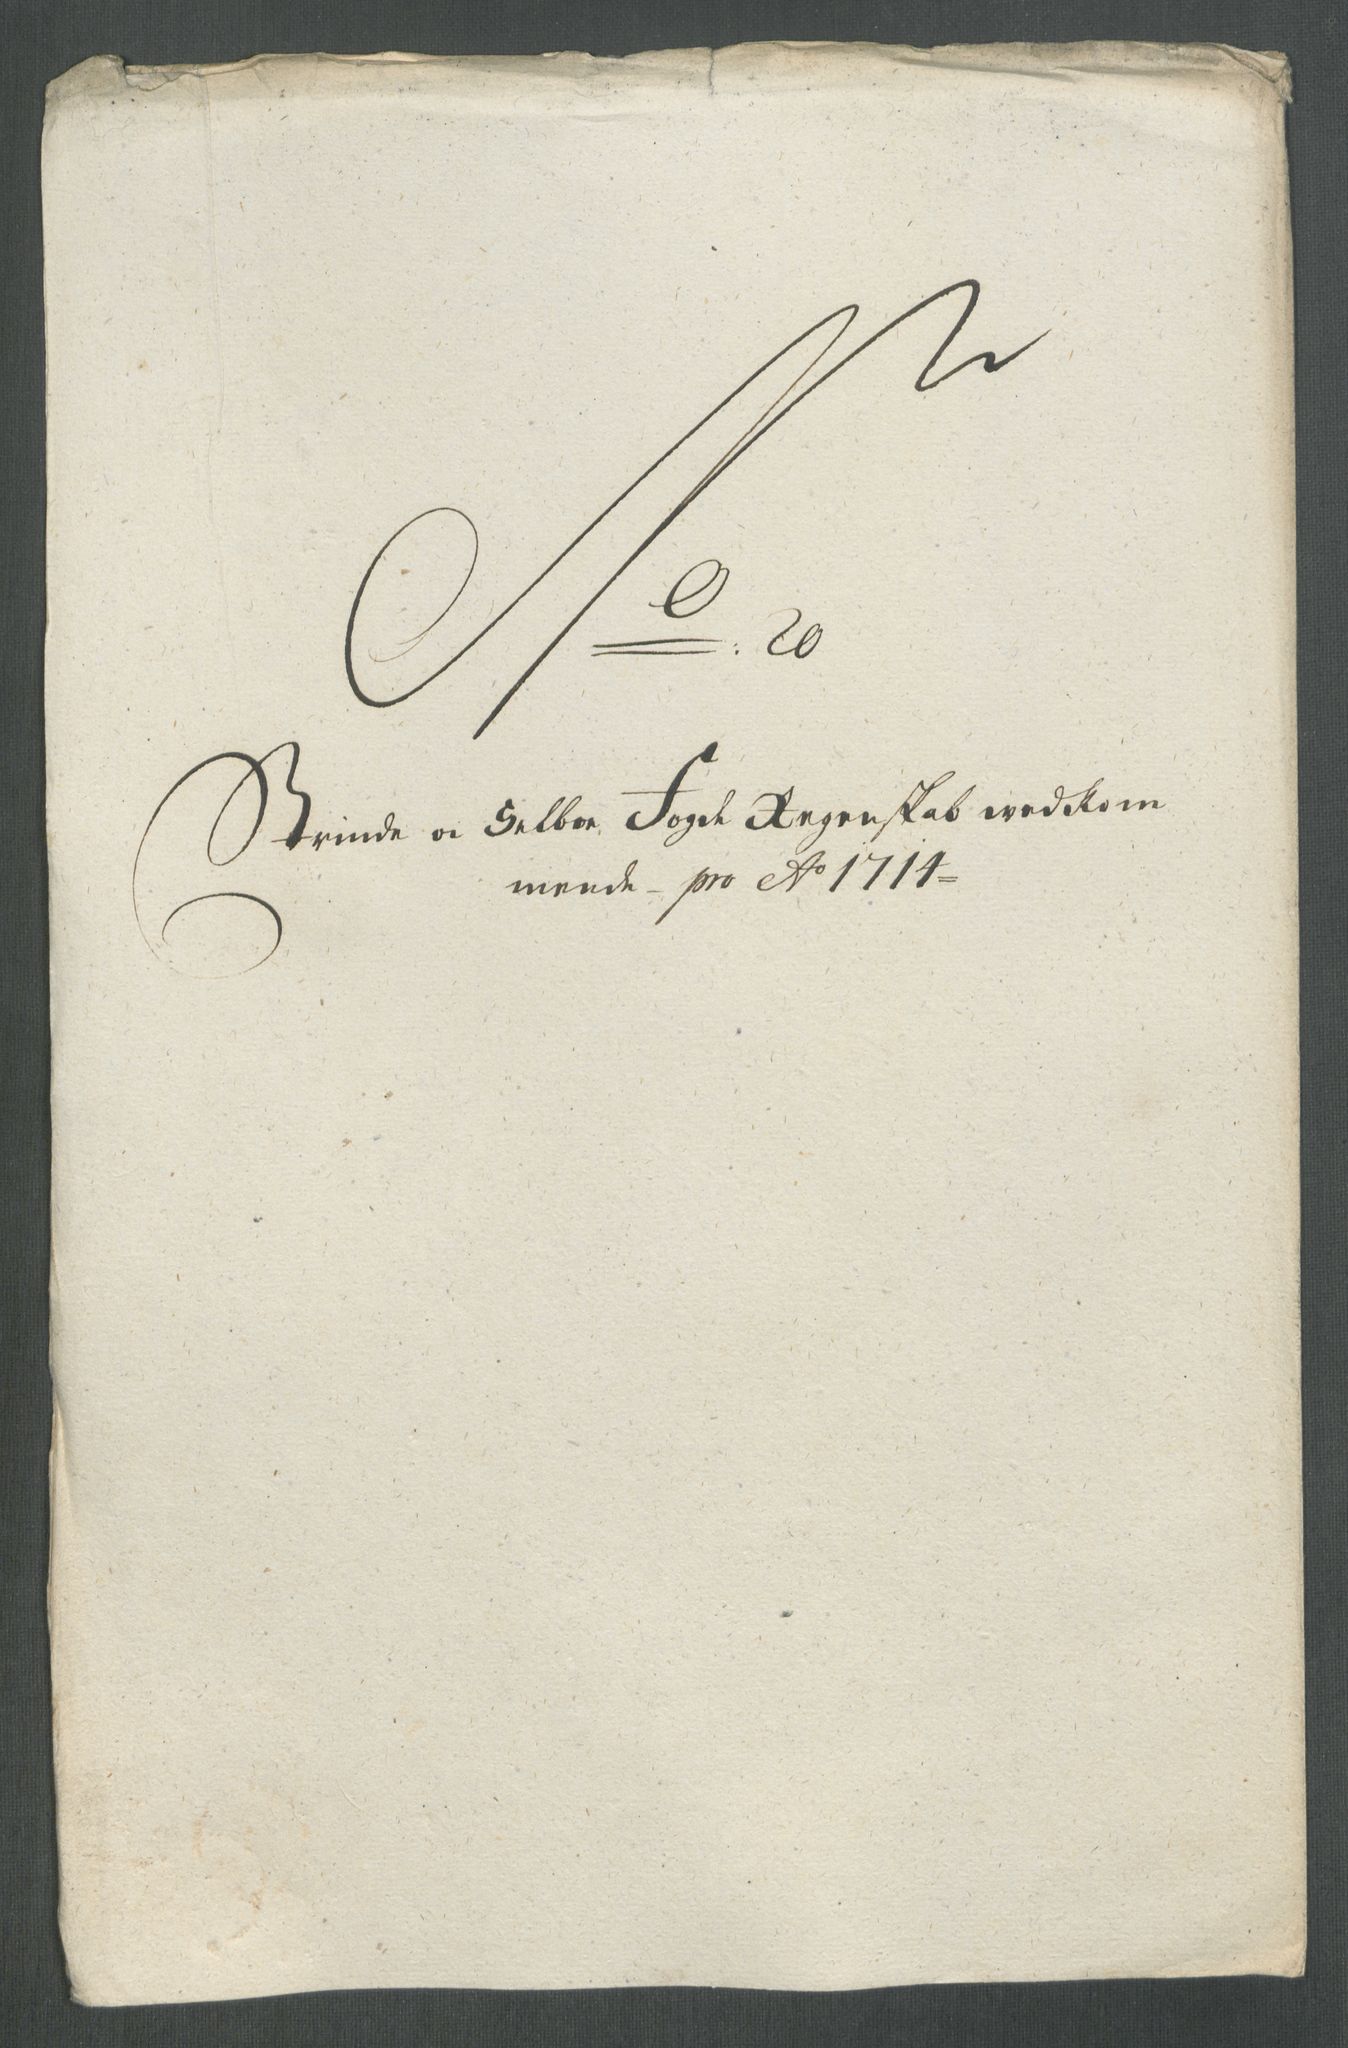 No: 20
Strinde oc Selboe Fogde Regenskab wedkom
mende - pro Ao 1714=